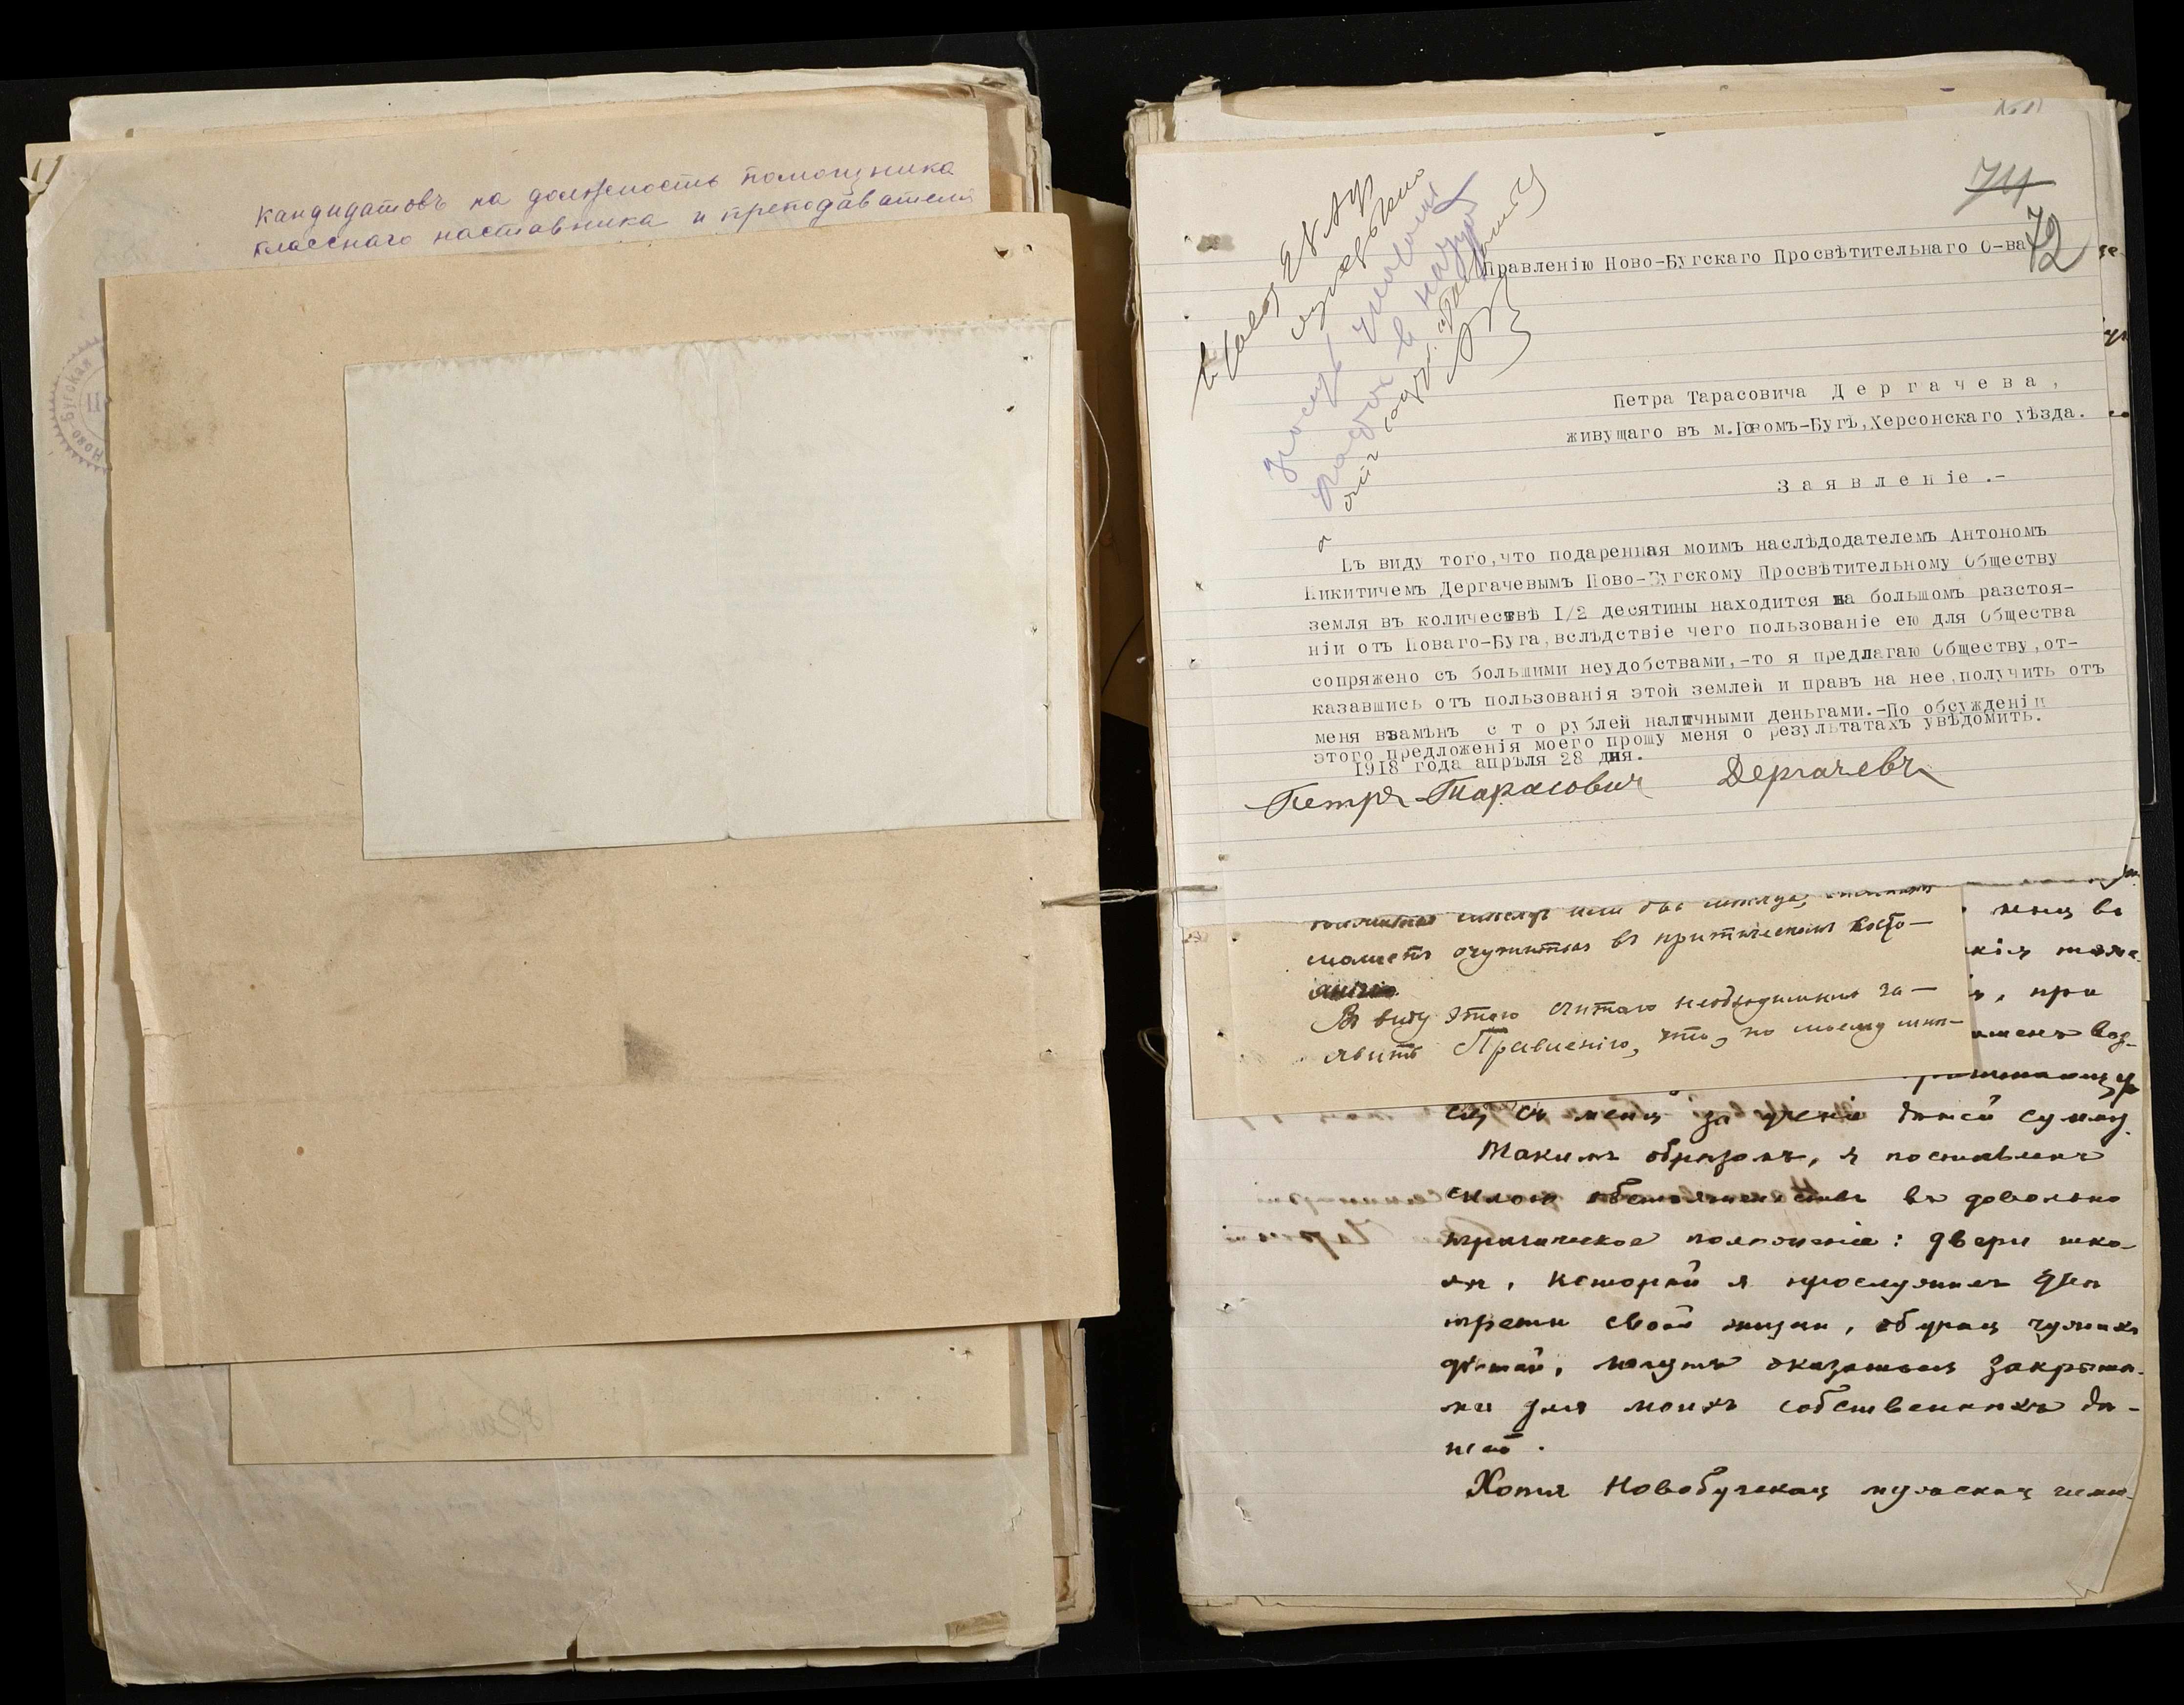 кандидатовъ на должность помощника
класснаго наставника и преподавателя
Ново-Бугская
74
72
Правленію Ново-Бугскаго Просвѣтительнаго О-ва
Петра Тарасовича Дергачева,
живущаго въ м.Новомъ-Бугѣ,Херсонскаго уѣзда.
Заявленіе.-
Въ виду того,что подаренная моимъ наслѣдодателемъ Антономъ
Никитичемъ Дергачевымъ Ново-Бугскому Просвѣтительному Обществу
земля въ количествѣ I/2 десятины находится на большомъ разстоя-
ніи отъ Новаго-Буга,вслѣдствіе чего пользованіе ею для Общества
сопряжено съ большими неудобствами,-то я предлагаю Обществу,от-
казавшись отъ пользованія этой землей и правъ на нее,получить отъ
меня взамѣнъ сто рублей наличными деньгами.-По обсужденіи
этого предложенія моего прошу меня о результатахъ увѣдомить.
1918 года апрѣля 28 дня.
Петръ Тарасовичъ Дергачевъ
можетъ очутиться въ критическомъ
Въ виду этого считаю необходимымъ за-
явить Правленію, что, по моему мнѣ-
меня въ
при
съ меня за ученіе дѣтей сумму.
Такимъ образомъ, я поставленъ
силою обстоятельствъ въ довольно
трагическое положеніе: двери шко-
лы, которой я прослужилъ двѣ
трети своей жизни, обучая чужихъ
дѣтей, могутъ оказаться закрыты-
ми для моихъ собственныхъ дѣ-
тей.
Хотя Новобугская мужская гимн-